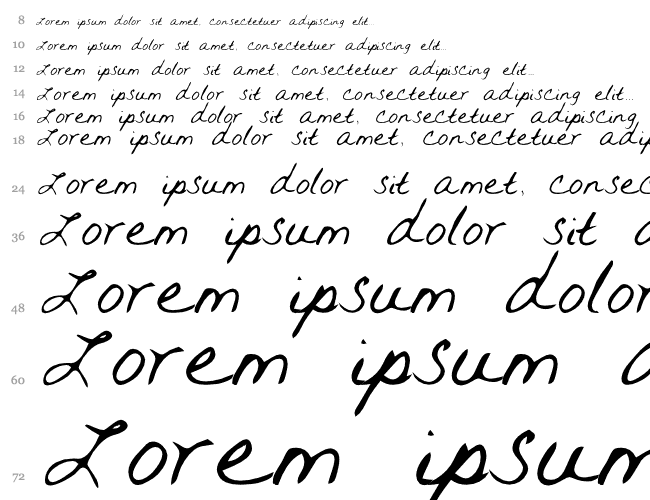 8 Lorem ipsum dolor sit amet, consectetuer adipiscing elit...
10 Lorem ipsum dolor sit amet, consectetuer adipiscing elit...
12 Lorem ipsum dolor sit amet, consectetuer adipiscing elit...
14 Lorem ipsum dolor sit amet, consectetuer adipiscing elit...
16 Lorem ipsum dolor sit amet, consectetuer adipiscing
18 Lorem ipsum dolor sit amet, consectetuer adip
24 Lorem ipsum dolor sit amet, consec
36 Lorem ipsum dolor sit
48 Lorem ipsum dolor
60 Lorem ipsum
72 Lorem ipsum